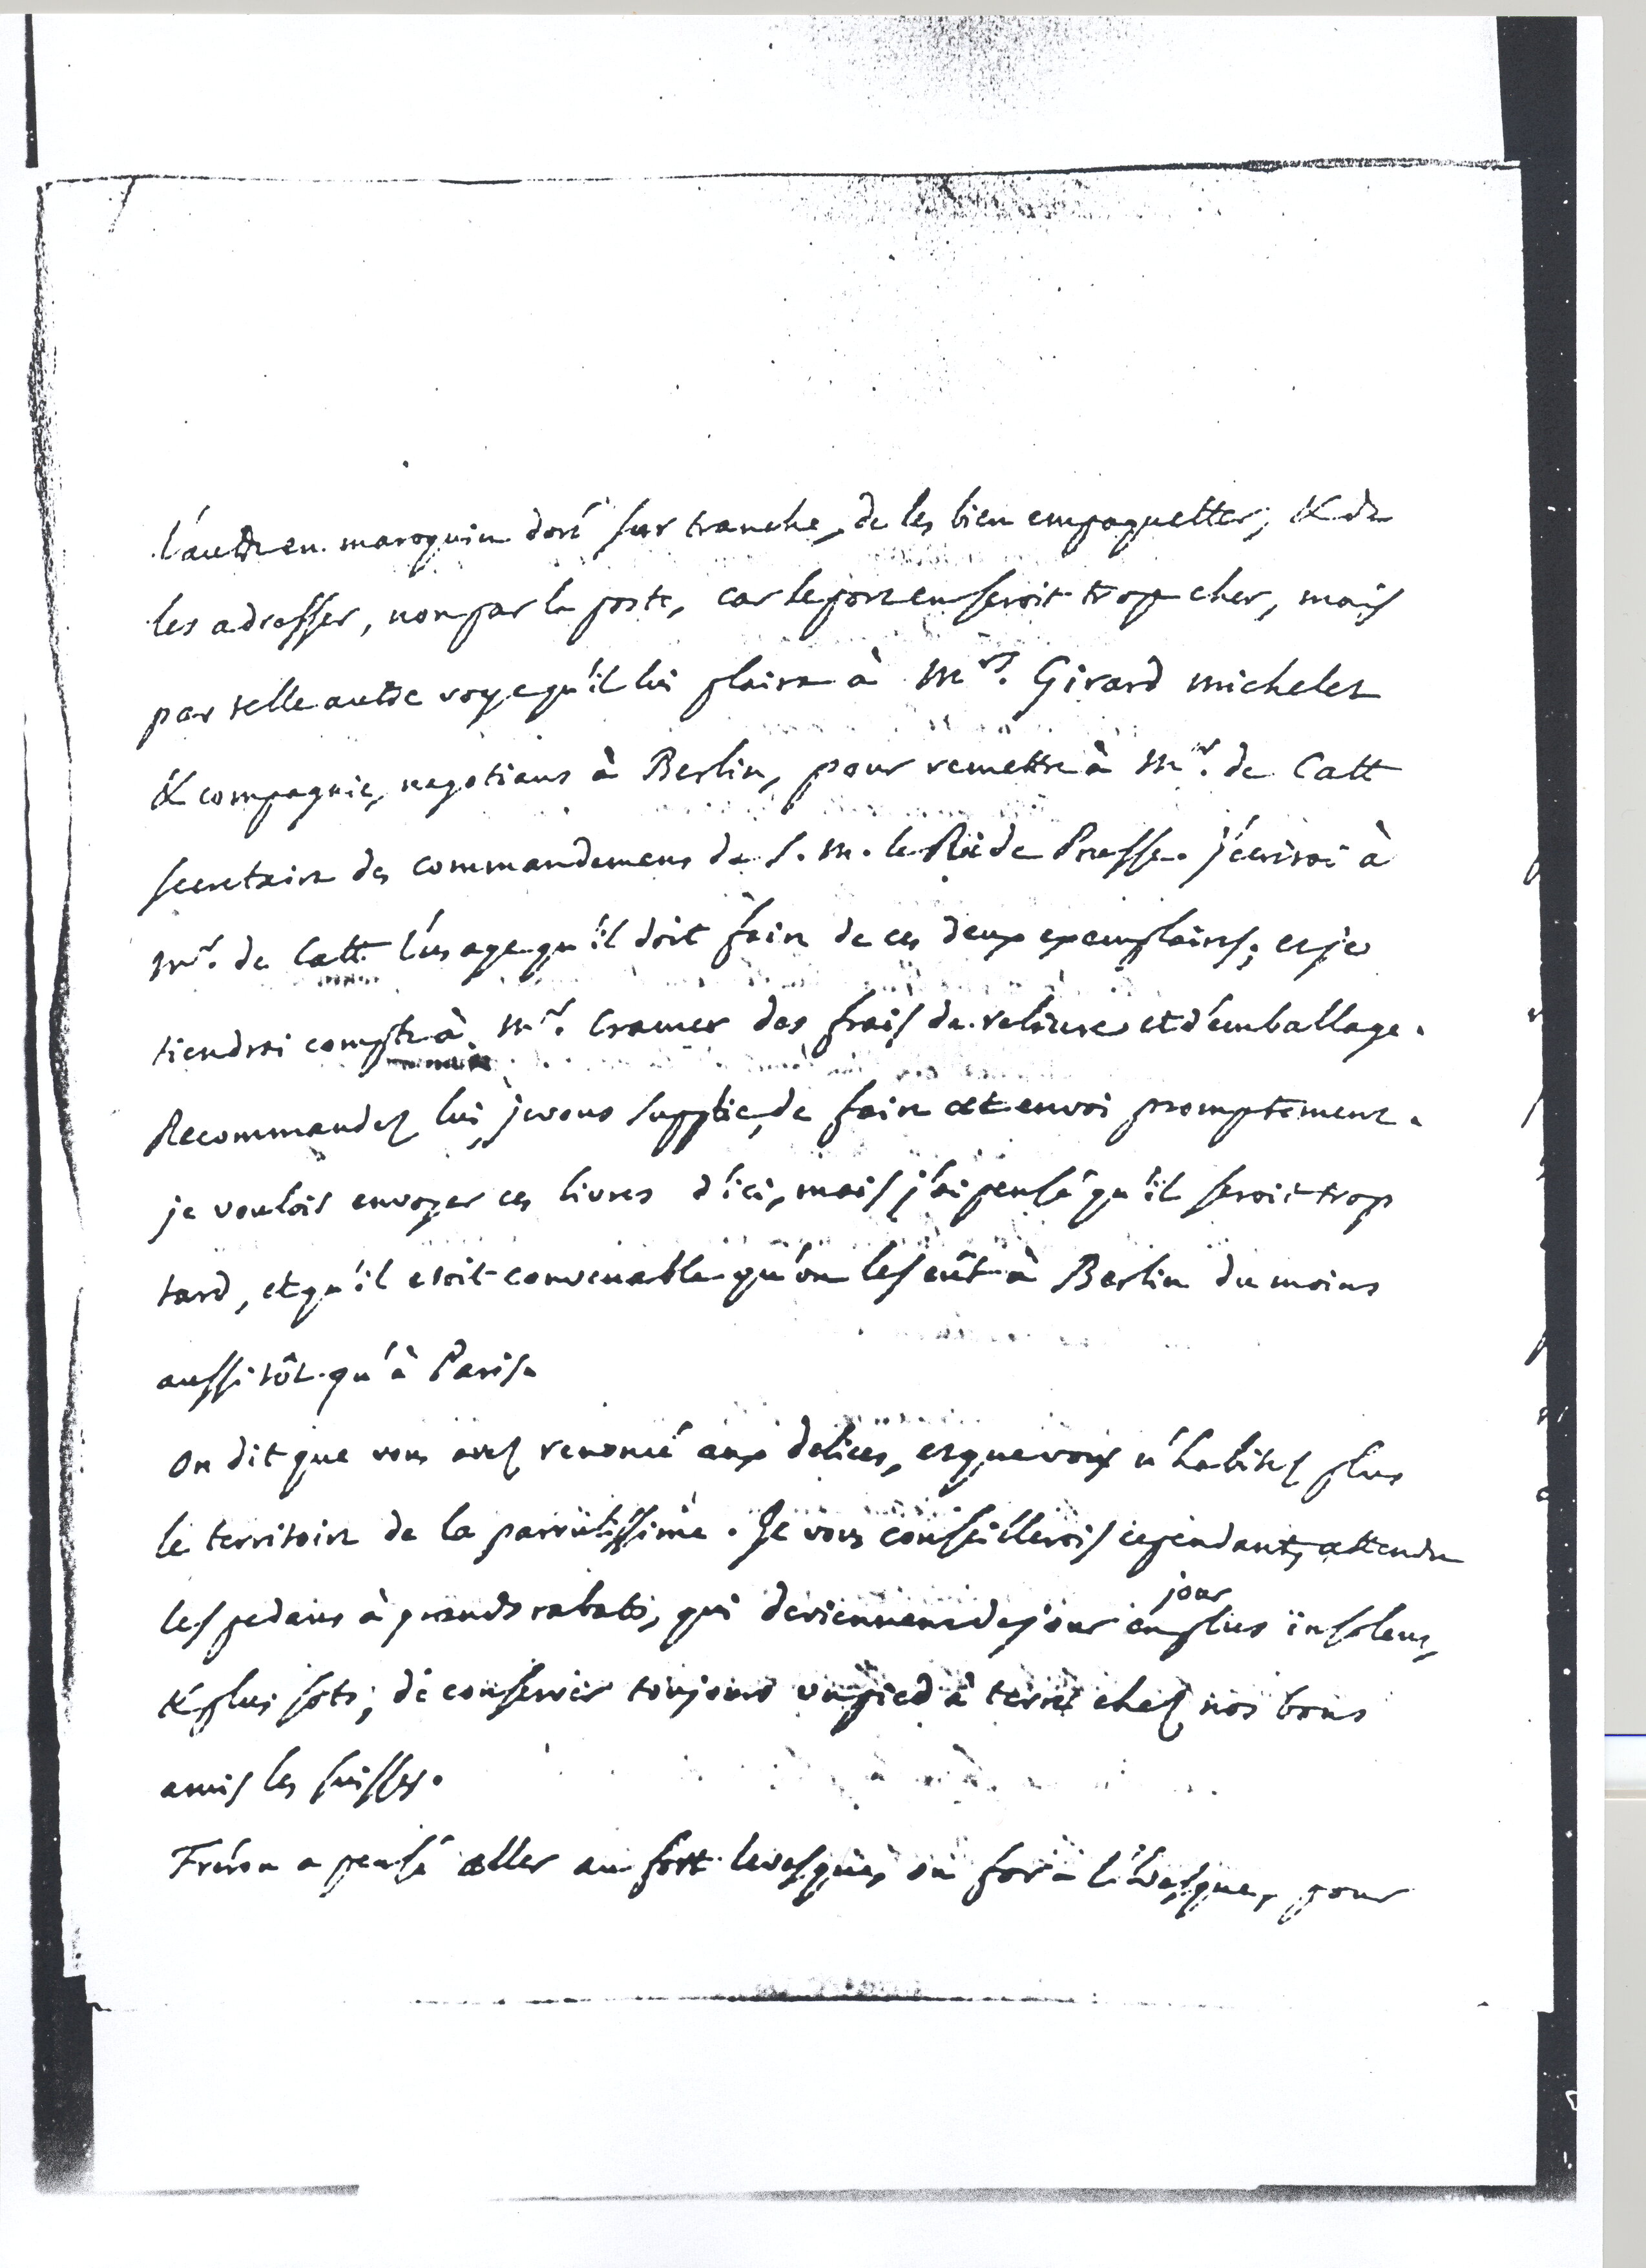 l'autre en maroquin doré sur tranche, de les bien empaquetter, & de
les adresser, non par la poste, car le port en seroit trop cher, mais
par telle autre voye qu'il lui plaira à Mrs. Girard michelet
& compagnie, negotians à Berlin, pour remettre à Mr. de Catt
secretaire des commandemens de S. M. le Roi de Prusse. J'écrirai à
Mr. de Catt l'usage qu'il doit faire de ces deux exemplaires; et je
tiendrai compte à Mr. Cramer des frais de relieure et d'emballage.
Recommandez lui, je vous supplie, de faire cet envoi promptement.
je voulois envoyer ces livres d'ici, mais j'ai pensé qu'il seroit trop
tard, et qu'il etoit convenable qu'on les eût à Berlin du moins
aussi tôt qu'à Paris.
On dit que vous avez renoncé aux delices, et que vous n'habitez plus
le territoire de la parvulissime. Je vous conseillerois cependant, attendu
les pedans à grands rabats, qui deviennent de jour en jour plus insolens,
& plus sots, de conserver toujours un pied à terre chez nos bons
amis les suisses.
Fréron a pensé aller au fort levesque, ou for-l'évesque, pour